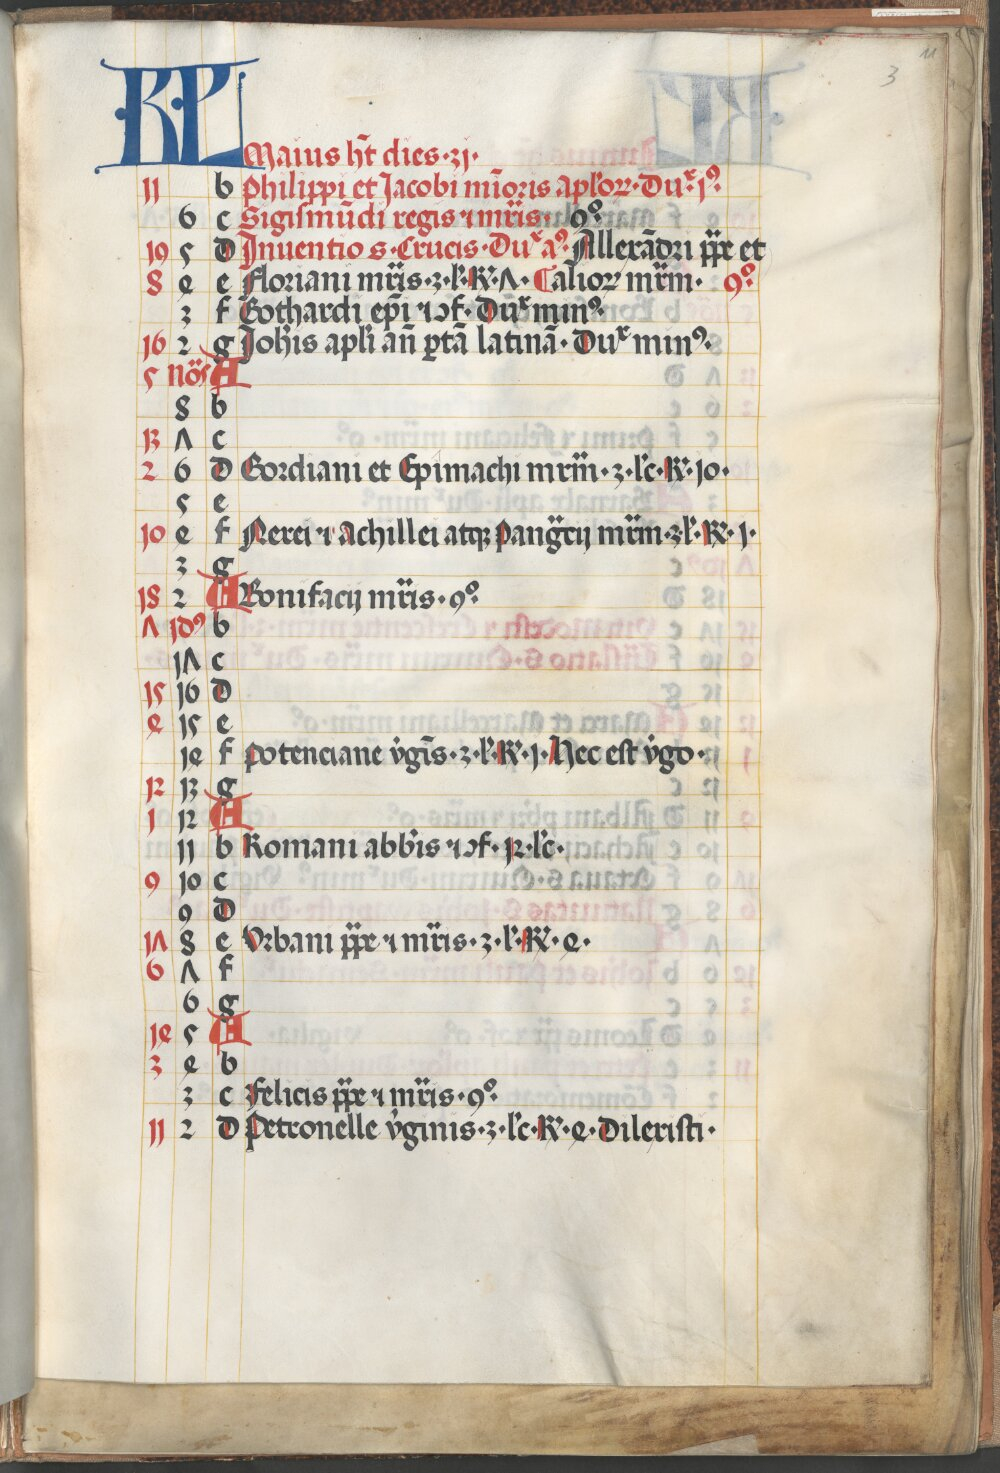 11
3
KL
Maius ht̄ dies·31·
11 b Philippi et Jacobi mīoris aploꝝ·Duˣ·1⁹
6 c Sigismūdi regis ⁊ mr̄is· 9⁹
19 5 D Inuentio s·Crucis·Duˣ a⁹· Allexādri pp̄e et
8 4 e Floriani mr̄is·3·l'·R̸·Λ· Calioꝝ mr̄m· 9⁹
3 f Gothardi ep̄i ⁊ ↄf·Duˣ min⁹·
16 2 g Joh̄is apl'i an̄ ꝑtā latinā·Duˣ min⁹·
5 nōs A
8 b
13 Λ c
2 6 D Gordiani et Epimachi mr̄m·3·l'c·R̸·10·
5 e
10 4 f Nerei ⁊ Achillei atqꝫ Pangr̄cij mr̄m·3·l'·R̸·1·
3 g
18 2 A Bonifacij mr̄is·9⁹
Λ Id⁹ b
1Λ c
15 16 D
4 15 e
14 f Potenciane v̄gīs·3·l'·R̸·1·Hec est v̄go·
12 13 g
1 12 A
11 b Romani abb̄is ⁊ ↄf·12·l'c·
9 10 c
9 D
1Λ 8 e Vrbani pp̄e ⁊ mr̄is·3·l'·R̸·4·
6 Λ f
6 g
14 5 A
3 4 b
3 c Felicis pp̄e ⁊ mr̄is·9⁹
11 2 D Petronelle v̄ginis·3·l'c·R̸·4·Dilexisti·